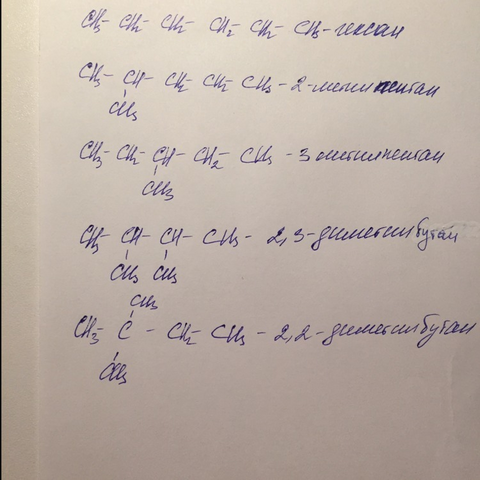 CH₃- CH₂- CH₂- CH₂- CH₂- CH₃ - гексан
CH₃- CH- CH₂- CH₂- CH₃ - 2-метилпентан
CH₃
CH₃- CH₂- CH- CH₂- CH₃ - 3 метилпентан
CH₃
CH₃- CH- CH- CH₃ - 2,3-диметилбутан
CH₃ CH₃
CH₃
CH₃- C - CH₂- CH₃ - 2,2-диметилбутан
CH₃